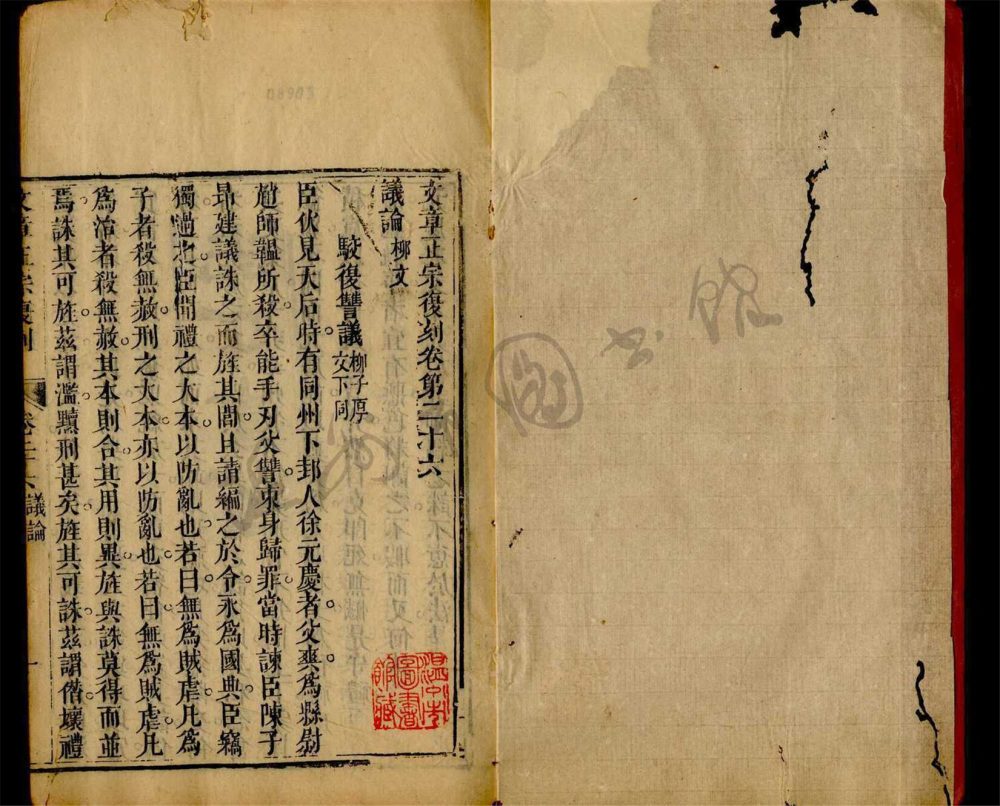 文章正宗復刻卷第二十六
議論 柳文
駁復讐議 柳子厚
文下同
臣伏見天后時有同州下邽人徐元慶者父爽爲縣尉
趙師韞所殺卒能手刃父讐束身歸罪當時諫臣陳子
昻建議誅之而旌其閭且請編之於令永爲國典臣竊
獨過之臣聞禮之大本以防亂也若曰無爲賊虐凡爲
子者殺無赦刑之大本亦以防亂也若曰無爲賊虐凡
爲治者殺無赦其本則合其用則異旌與誅莫得而並
焉誅其可旌茲謂濫黷刑甚矣旌其可誅茲謂僭壞禮
文章正宗復刻 卷二十六 議論 一
溫州市
圖書
館藏
圖書館